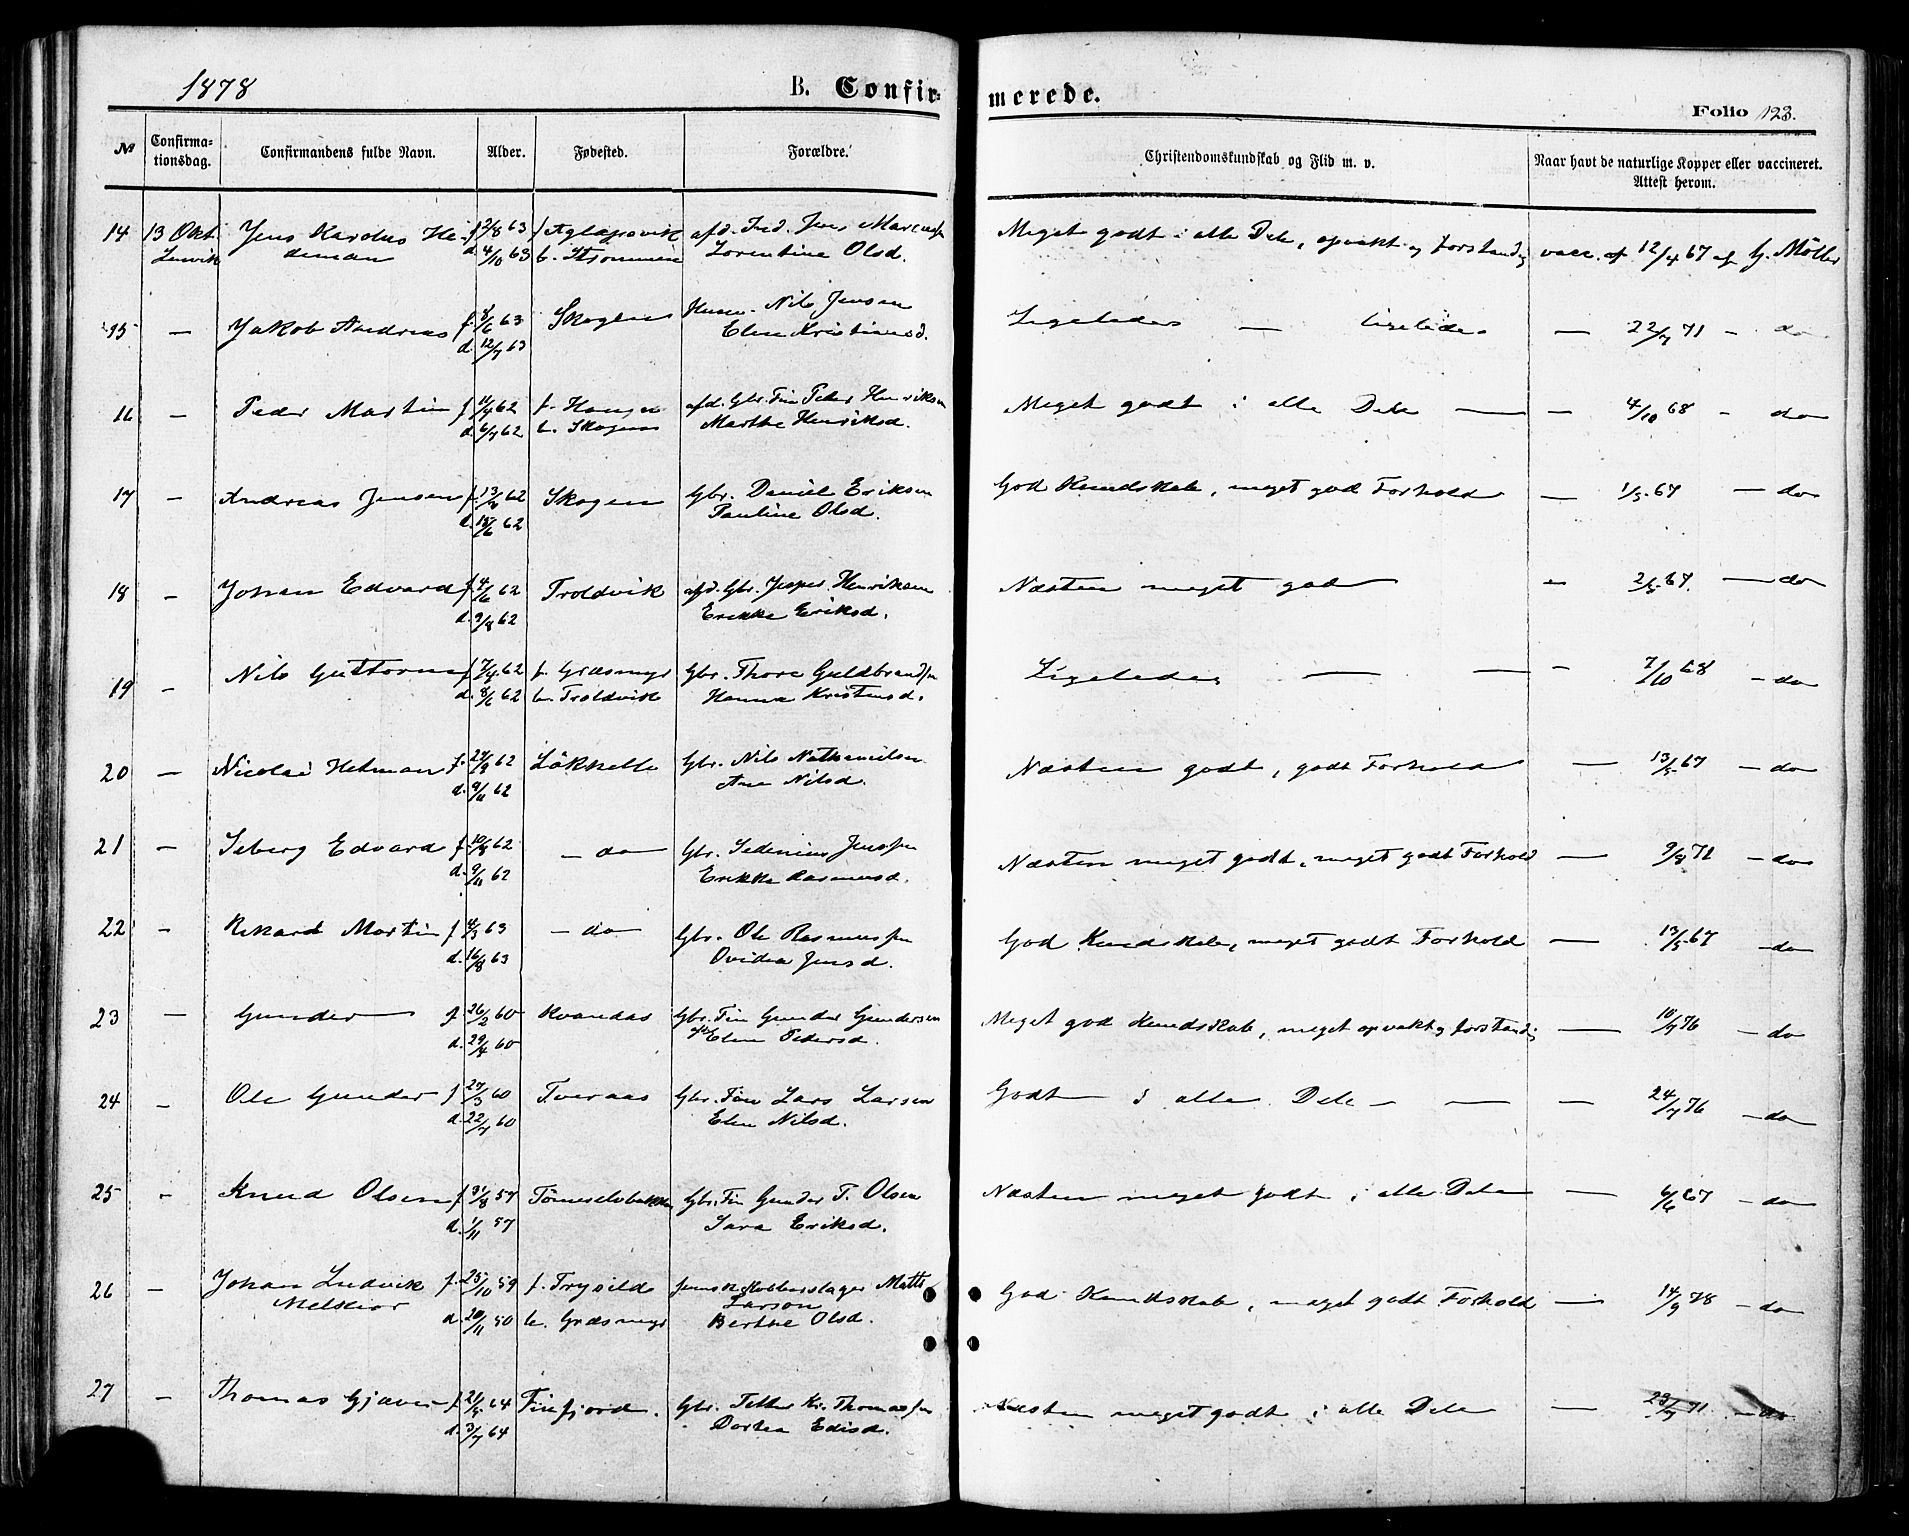 1878
B. Confirmerede.
Folio 123.
№ Confirmationsdag. Confirmandens fulde Navn. Alder. Fødested. Forældre. Christendomskundskab og Flid m. v. Naar havt de naturlige Kopper eller vaccineret. Attest herom.
14 13 Okt. Jens Kardus He- f 63 f Aglapsvik afd. Ind. Jens Meget godt i alle Dele, opvakt og forstandig vacc. af 12/4 67 af G. Möller
Lenvik deman d. 4/10 63 b. Lorentine Olsd.
15 — Jakob Andreas f. 8/6 63 Nils Jensen Ligeledes — ligeledes — 22/7 71 - do
d. 12/7 63 Elen Kristiansd.
16 — Peder Martin f 11/4 62 f. afd. Gbr. Fin Peter Henriksen Meget godt i alle Dele — — 4/10 68 - do
d. 6/7 62 b. Skogen Marthe Henriksd.
17 — Andreas Jensen f. 62 Skogen Gbr. Daniel Eriksen God Kundskab, meget god Forhold — 1/5 67 — do
d. 62 Pauline Olsd.
18 — Johan Edvard f. 4/6 62 Troldvik afd. Gbr. Jesper Henriksen Næsten meget god — - 2/5 67. — do
d. 9/8 62 Erikke Eriksd.
19 — Nils Guttorm f 7/4 62 f. Græsmyr Gbr. Thore Guldbrandsen Ligeledes — — - 7/10 68 — do
d. 8/6 62 b. Troldvik Hanna Kristensd.
20 — Nicolai Hetman f. 27/9 62 Läkhelle Gbr. Nils Nathanielsen Næsten godt, godt Forhold — 13/5 67 — do
d. 9/11 62 Ane Nilsd.
21 — Seberg Edvard f. 10/8 62 — do — Gbr. Sedenius Jenssen Næsten meget godt, meget godt Forhold — 9/8 72 — do
d. 9/11 62 Erikke Rasmusd.
22 — Rikard Martin f 4/3 63 — do — Gbr. Ole Rasmussen God Kundskab, meget godt Forhold — 13/5 67 — do
d. 16/8 63 Ovidia Jensd.
23 — Gunder — f 26/2 60 Kvandas Gbr. Fin Gunder Gundersen Meget god Kundskab, meget opvakt og forstandig — 10/7 76 — do
d. 29/4 60 afd. Elen Pedersd.
24 — Ole Gunder f 27/3 60 Tveraas Gbr. Fin Lars Larsen Godt i alle Dele — — — 24/7 76 — do
d. 22/7 60 Elen Nilsd.
25 - Knud Olsen f. 31/8 57 Tömmeselvbakken Gbr. Fin Gunder T. Olsen Næsten meget godt i alle Dele — 6/6 67 — do
d. 1/11 57 Sara Eriksd.
26 — Johan Ludvik f. 25/10 59 f. Trysild Kobberslager Matts God Kundskab, meget godt Forhold — 14/9 78 — do
Melkior Larson
d. 20/11 50 b. Græsmyr Berthe Olsd.
27 — Thomas Gjæver f. 21/5 64 Finfjord. Gbr. Petter Kr. Thomassen Næsten meget godt i alle Dele — 23/7 71 — do
d. 3/7 64 Dortea Edisd.